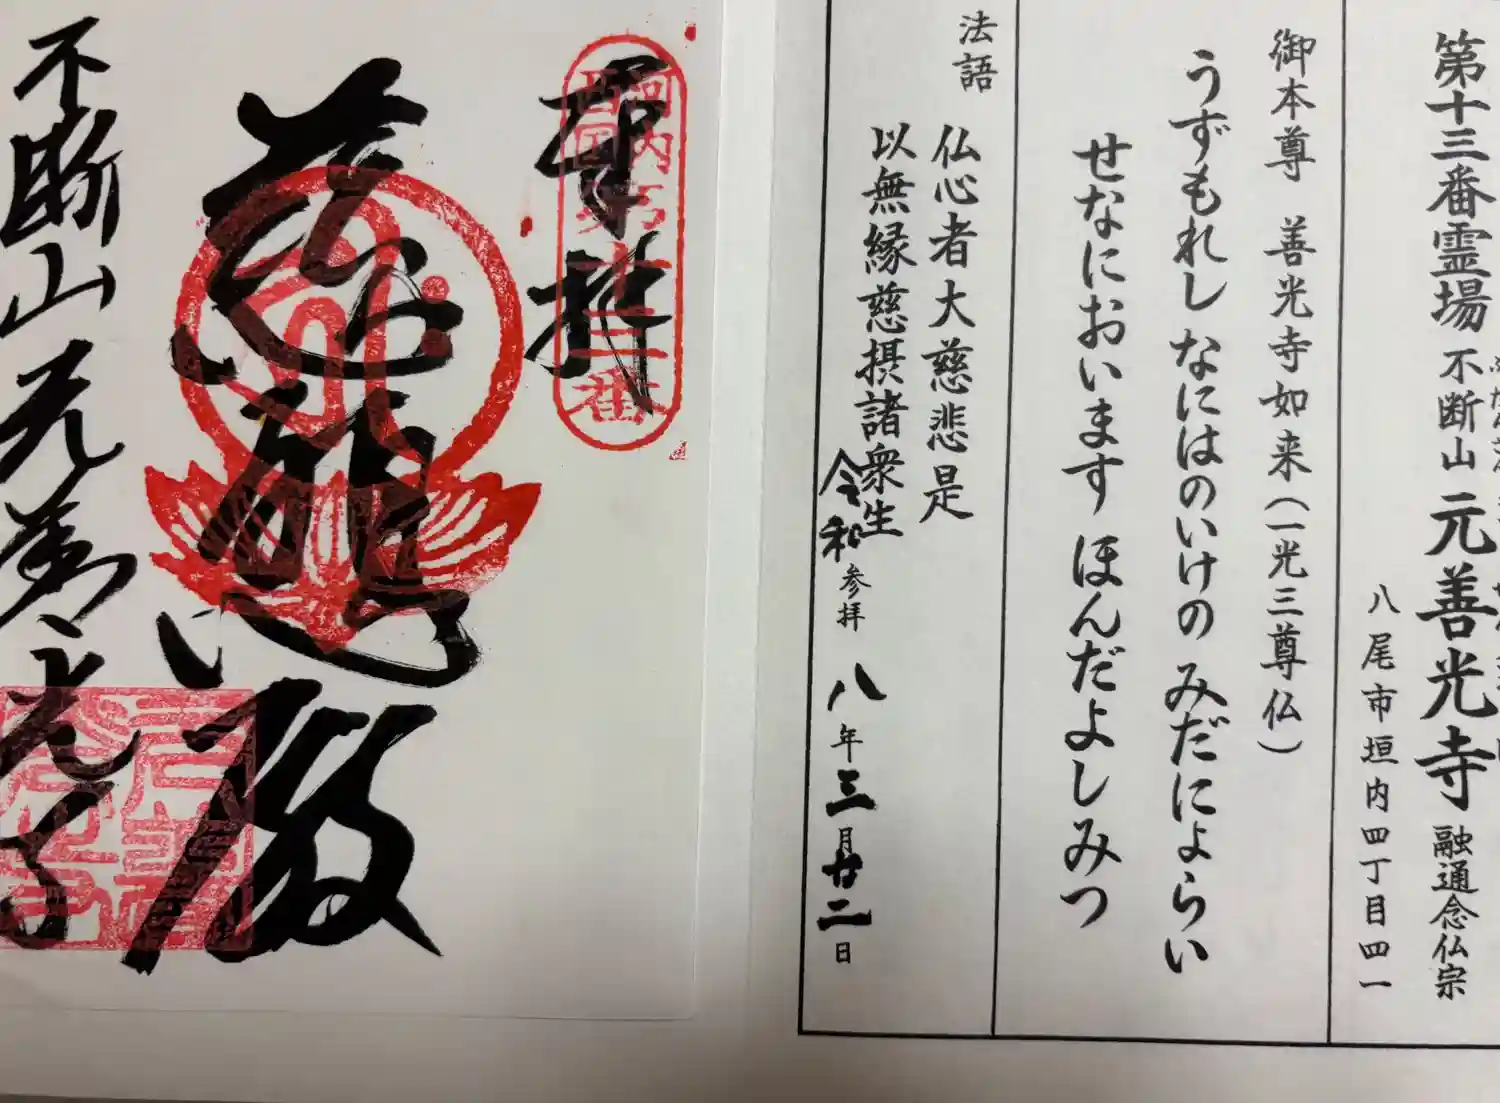 第十三番霊場 不断山 元善光寺 融通念仏宗
八尾市垣内四丁目四一
御本尊 善光寺如来（一光三尊仏）
うずもれし なにはのいけの みだによらい
せなにおいます ほんだよしみつ
法語
仏心者大慈悲是
以無縁慈摂諸衆生
令和参拝 八年三月廿二日
奉拝
河内西国第十三番
殿
不断山 元善光寺